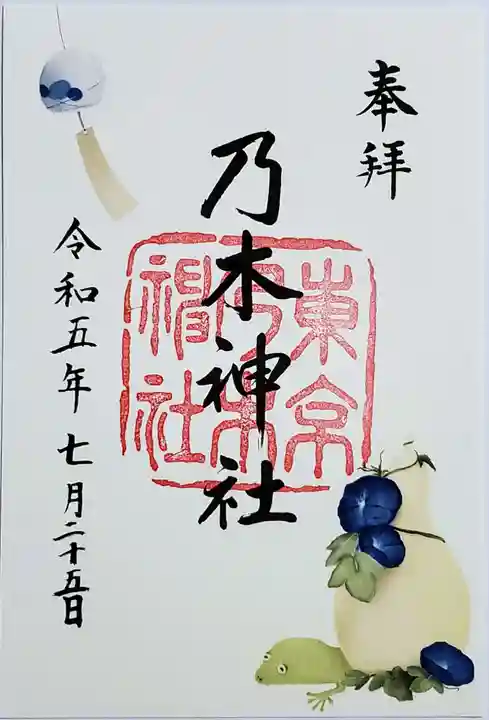 奉拝
乃木神社
東京
乃木
神社
令和五年七月二十五日